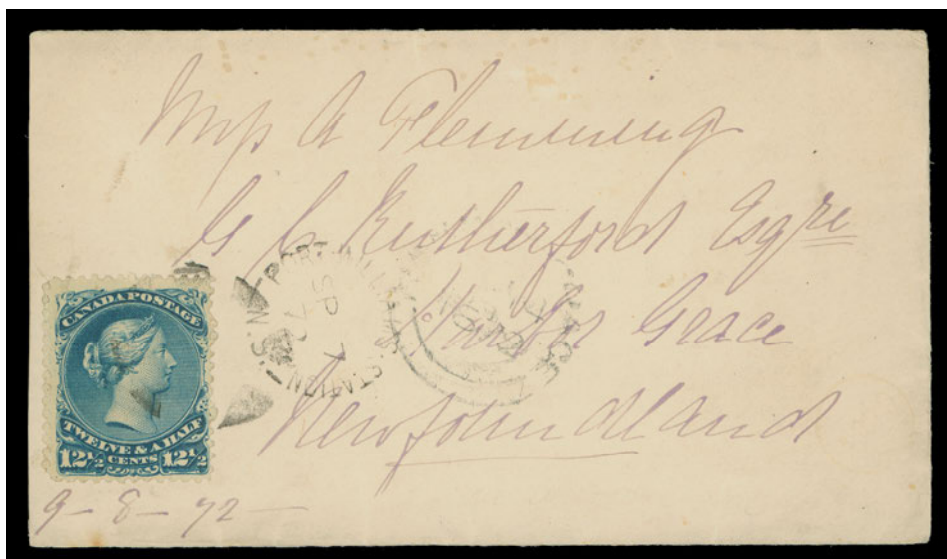 Miss A Flemming
G C Rutherford Esqre
Harbor Grace
Newfoundland
CANADA POSTAGE
TWELVE & A HALF
12½ CENTS 12½
PORT WILLIAMS STATION N.S.
SP 7
72
9-8-72-